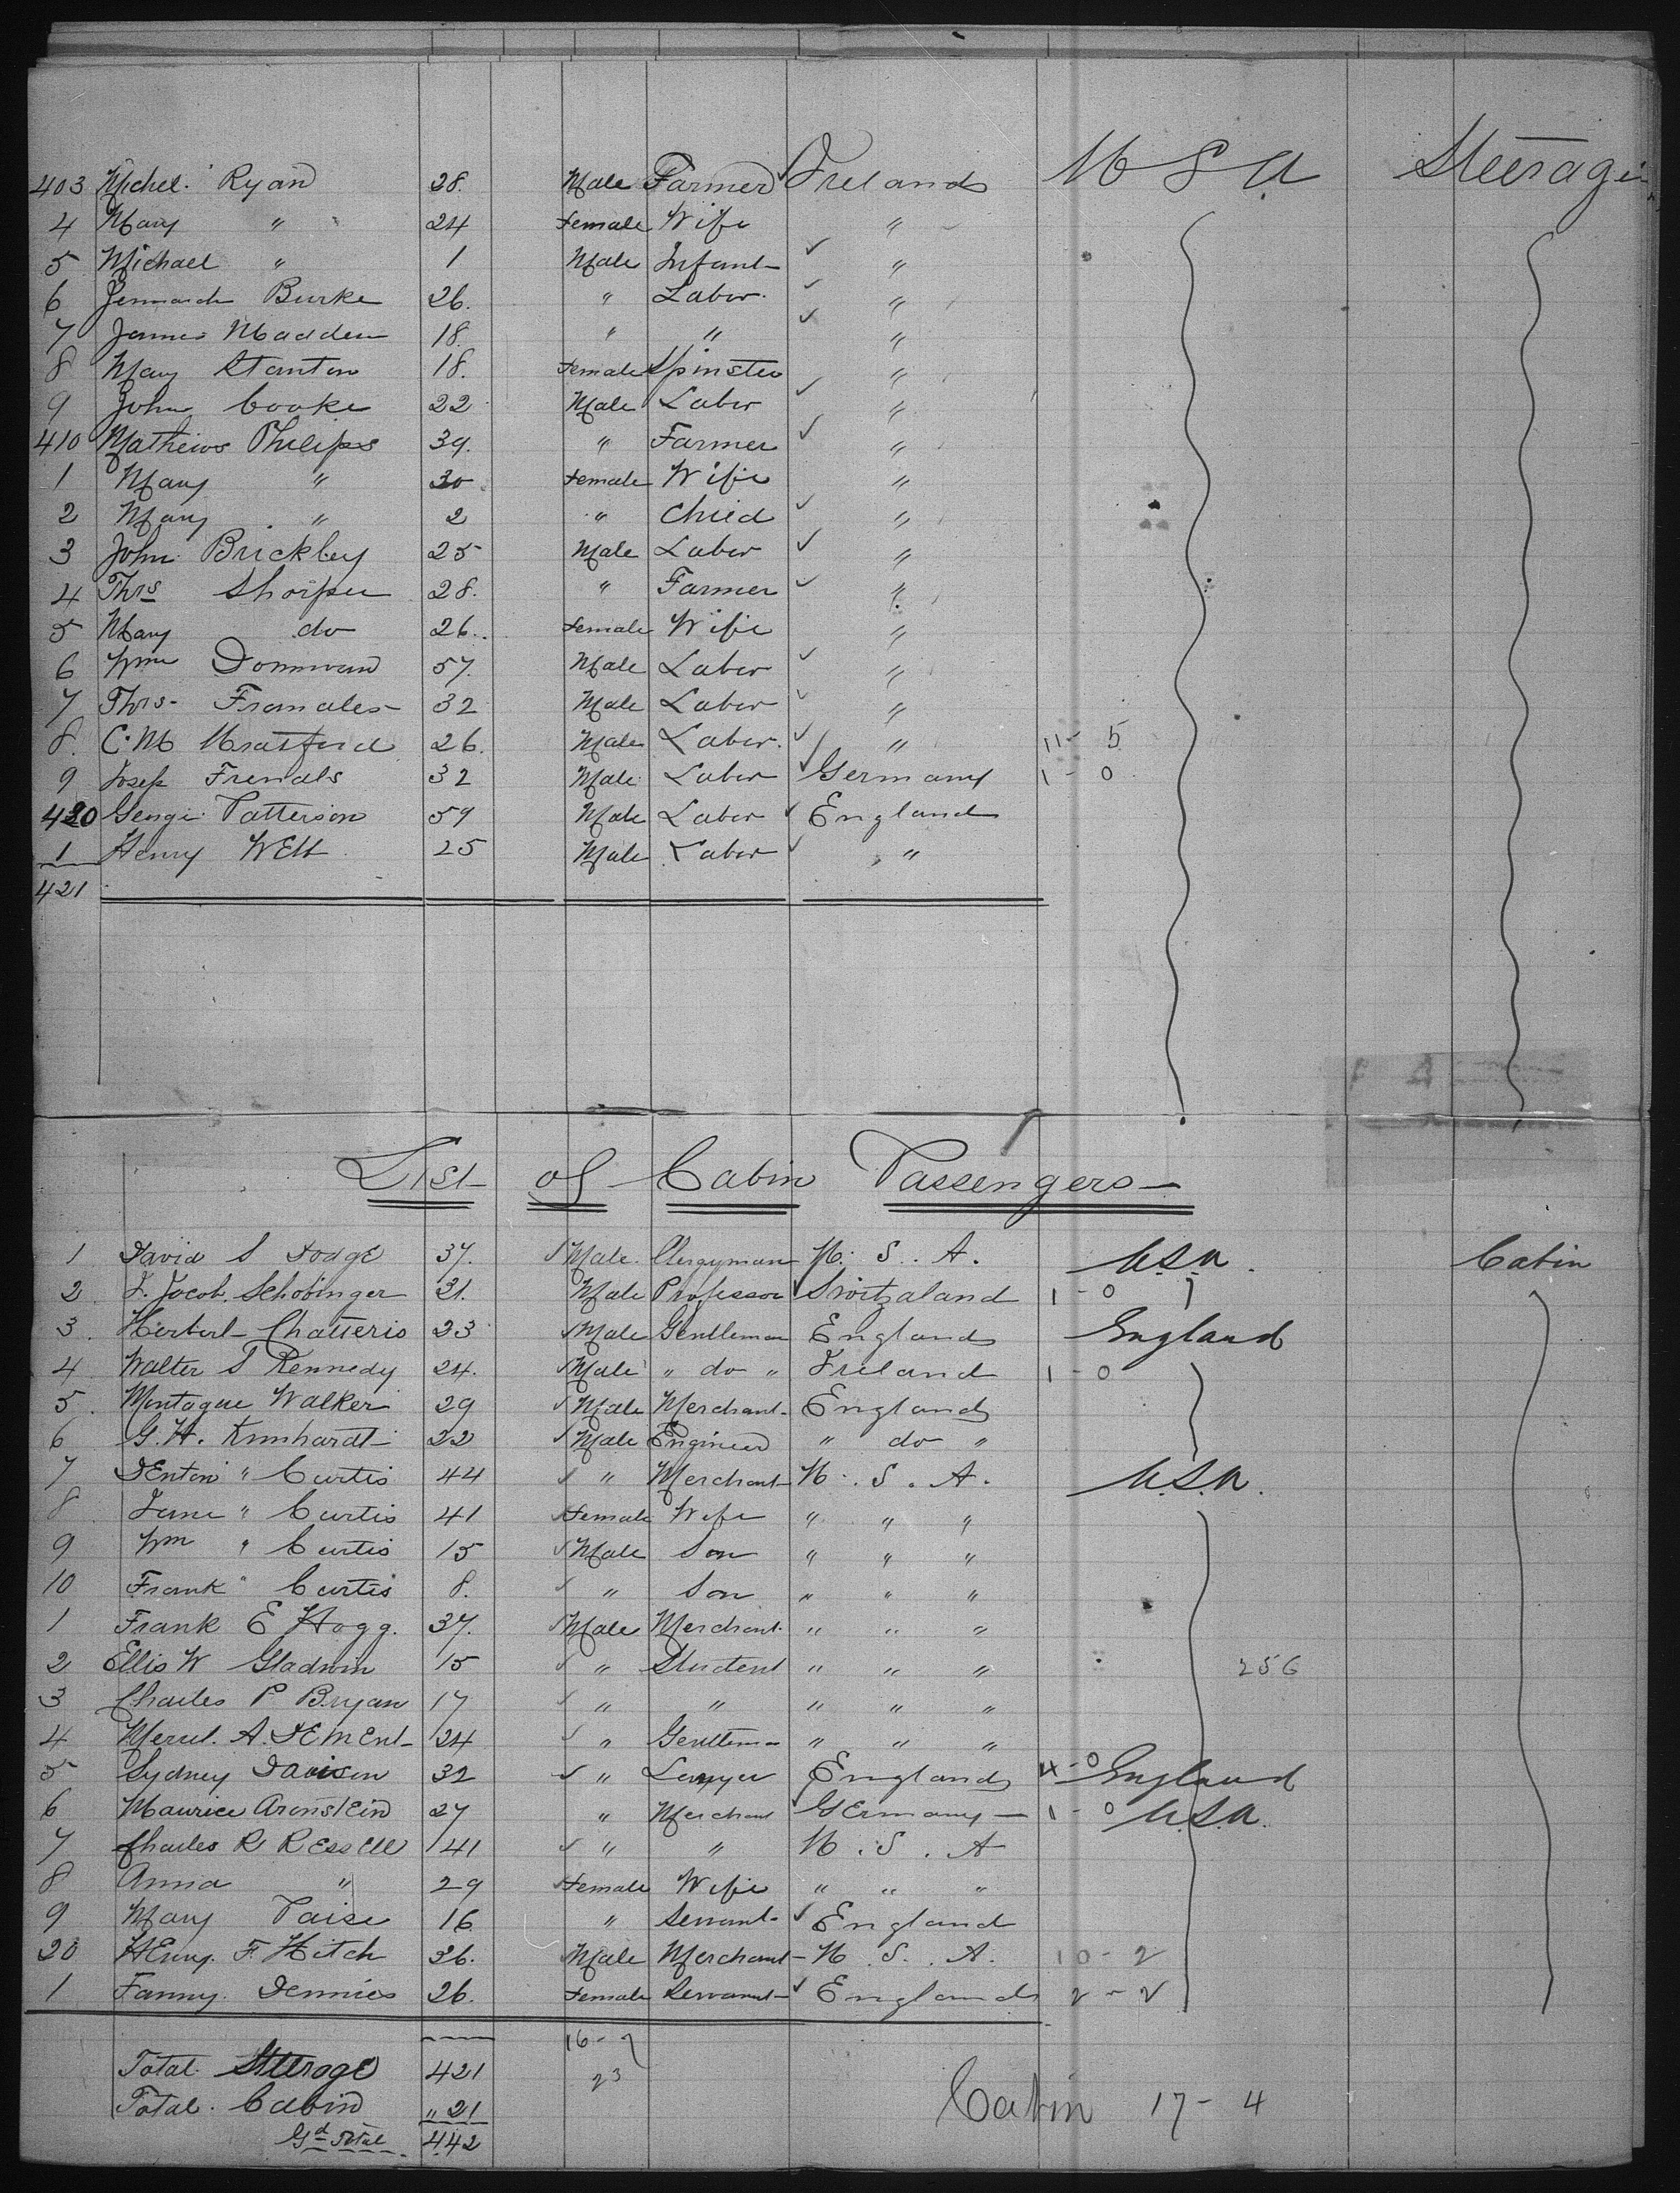 403 Michel. Ryan 28. Male Farmer Ireland U S A Steerage
4 Mary " 24 Female Wife "
5 Michael " 1 Male Infant "
6 Burke 26. " Labor. "
7 James Madden 18. " " "
8 Mary Stanton 18. Female Spinster "
9 John Cooke 22 Male Labor "
410 Mathews Philips 39. " Farmer "
1 Mary " 30 Female Wife "
2 Mary " 2 " Child "
3 John Brickley 25 Male Labor "
4 Thos 28. " Farmer "
5 Mary do 26. Female Wife "
6 Wm Donnovan 57. Male Labor "
7 Thos. 32 Male Labor "
8. C. M 26. Male Labor. " 11 - 5
9 Josep Frendls 32 Male Labor Germany 1 - 0
420 Patterson 59 Male Labor England
1 Henry 25 Male Labor "
421
List of Cabin Passengers
1 David S Dodge 37. Male. Clergyman U. S. A. U.S.A. Cabin
2 F. Jacob. Schobinger 31. Male Professor Switzaland 1 - 0
3. Herbert Chatteris 23 Male Gentleman England England
4 Walter S Kennedy 24. Male " do " Ireland 1 - 0
5. Montague Walker 29 Male Merchant England
6 G. H. Kunhardt 22 Male Engineer " do "
7 Denton " Curtis 44 " Merchant U. S. A. U.S.A.
8 Jane " Curtis 41 Female Wife " " "
9 Wm " Curtis 15 Male Son " " "
10 Frank " Curtis 8. " Son " " "
1 Frank E Hogg. 37. Male Merchant " " "
2 Ellis W Gladwin 15 " Student " " " 256
3 Charles P Bryan 17 " " " " "
4 A. Dement 24 " Gentleman " " "
5 Sydney Davison 32 " Lawyer England 4 - 0 England
6 Maurice Aronstein 27 " Merchant Germany 1 - 0 U.S.A.
7 Charles R Ressell 41 " " U. S. A
8 Anna " 29 Female Wife " " "
9 Mary Paise 16 " Servant England
20 Henry. F. Hitch 36. Male Merchant U. S. A. 10 - 2
1 Fanny. Dennies 26. Female Servant England 2 - 2
16 - 7
Total. Steerage 421 23
Total. Cabin " 21 Cabin 17 - 4
Gd Total 442